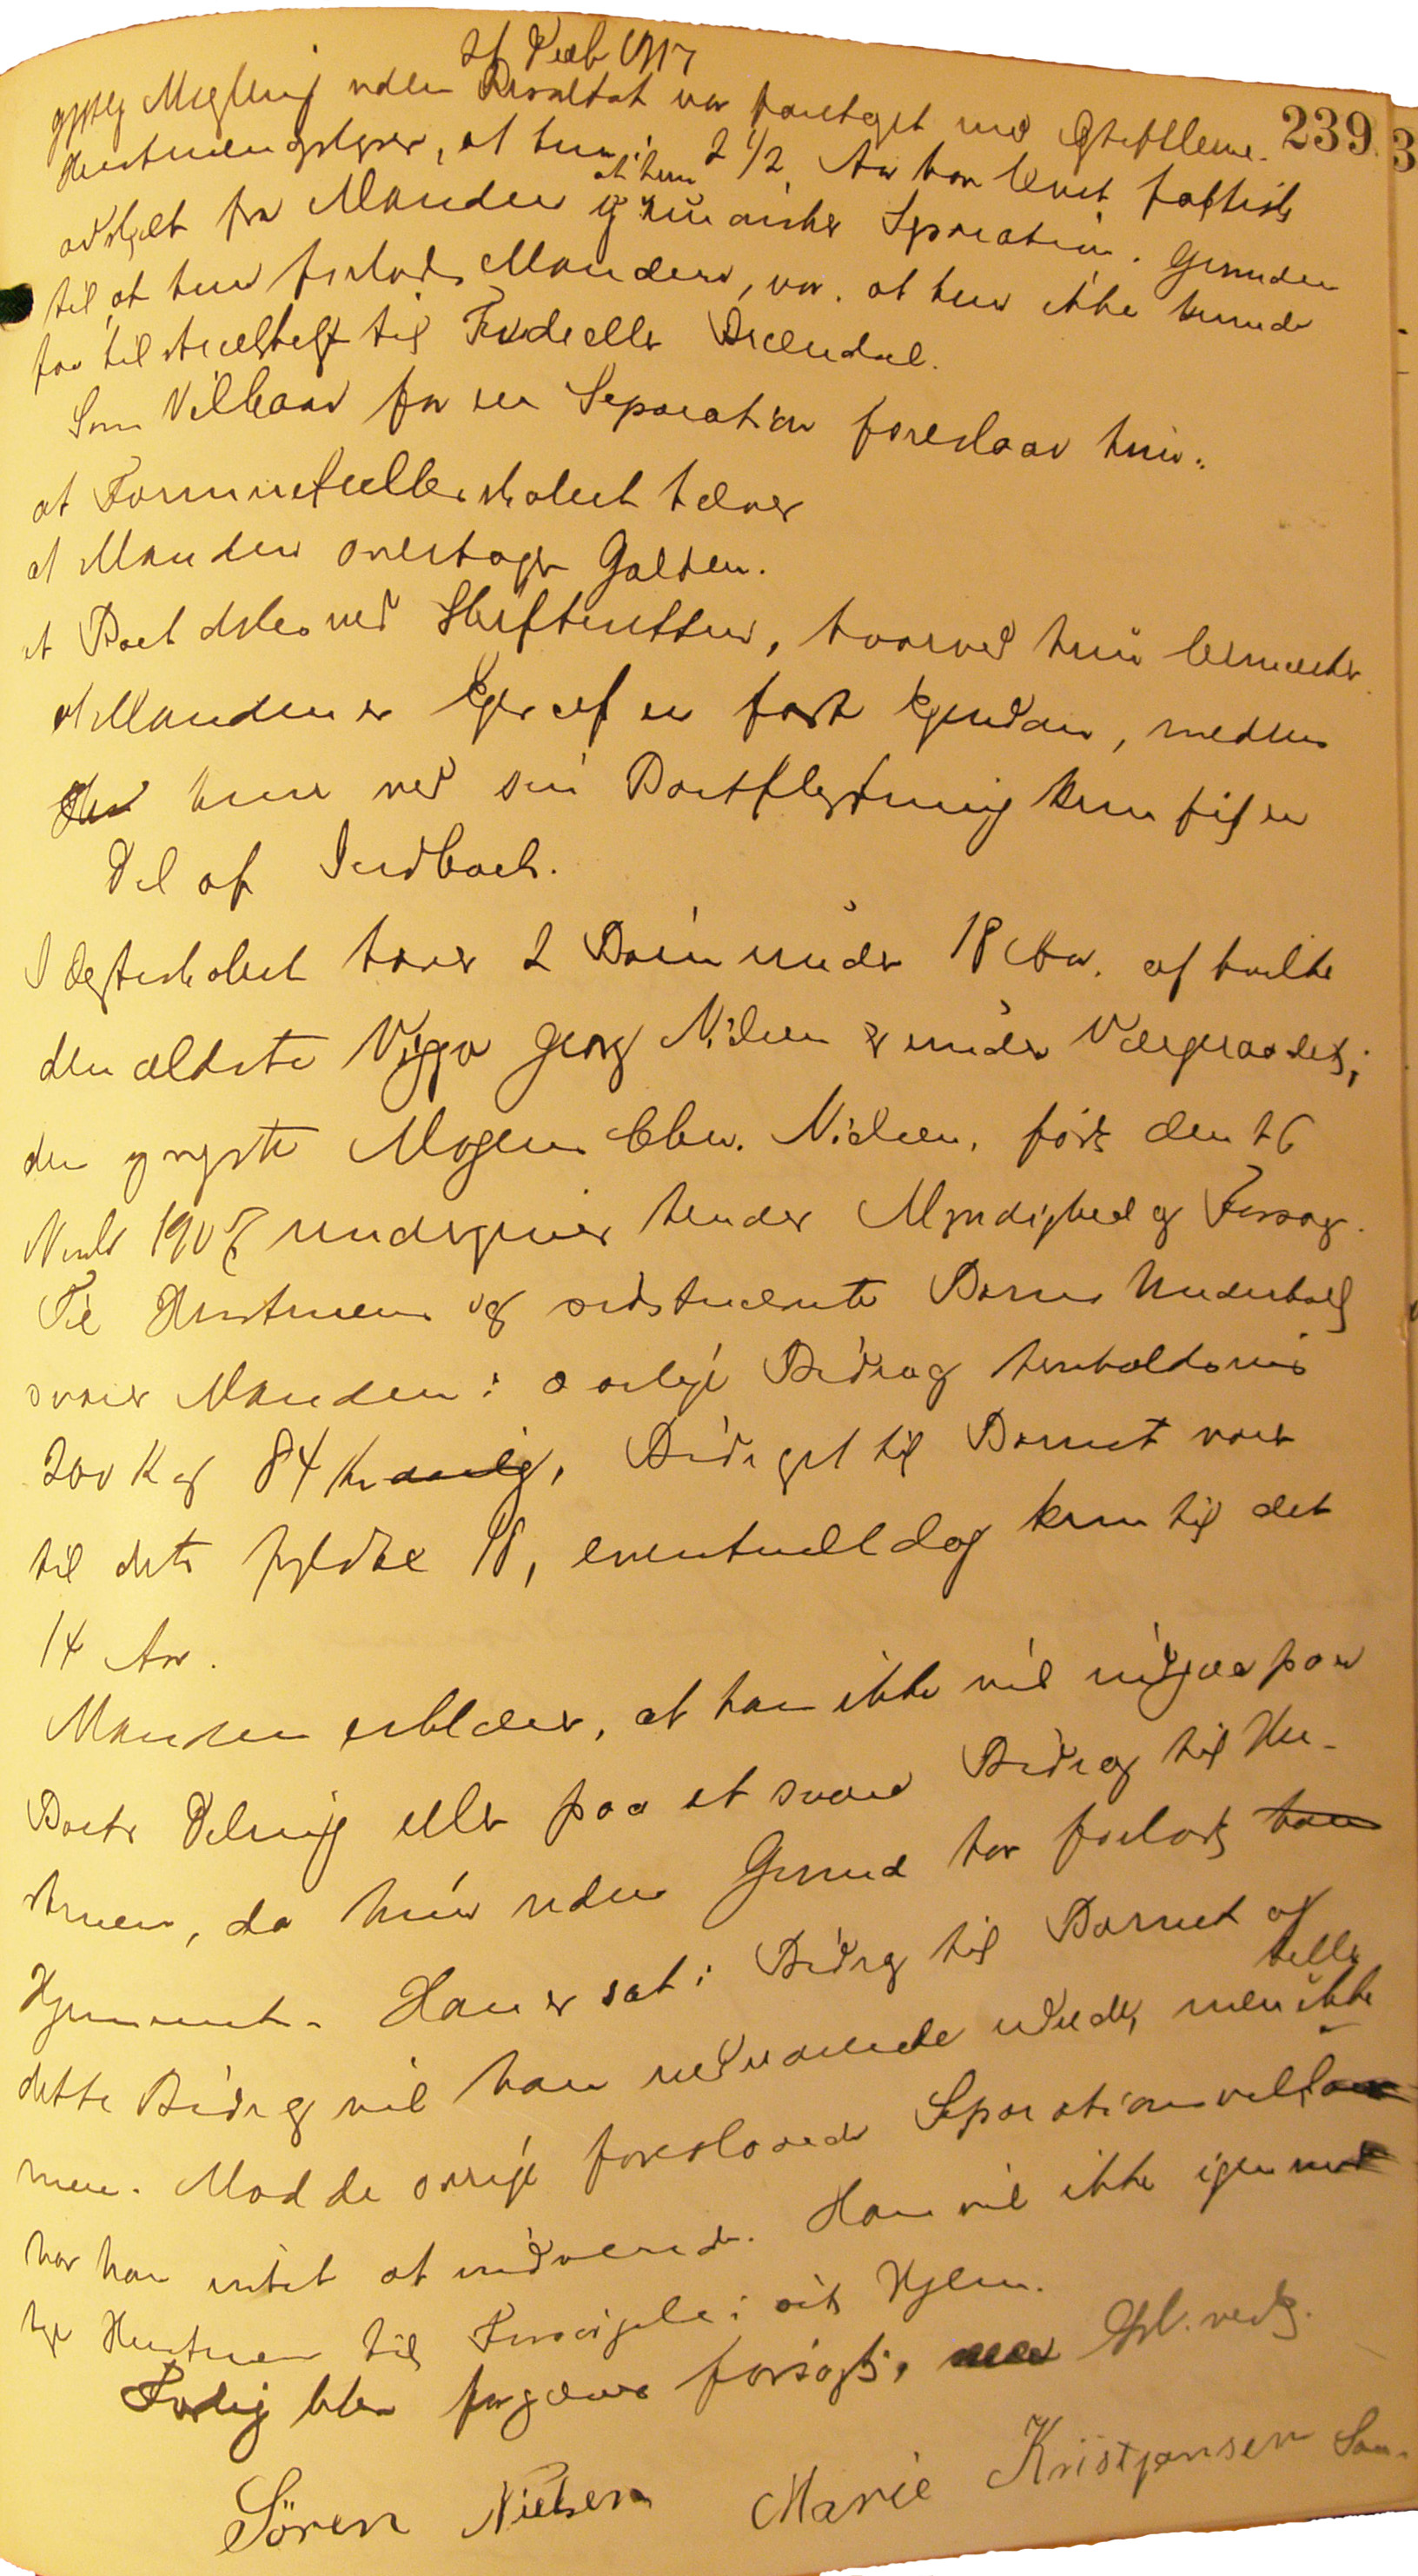 21 Decb 1917
239
gjstlig Mægling uden Resultat var foretaget med Ægtefællerne.
Hustruen oplyser, at hun i 2 1/2 Aar har levet faktisk
adskilt fra Manden og at hun ønsker Separation. Grunden
til, at hun forlod Manden, var, at hun ikke kunde
faa tilstrækkeligt til Føde eller Brændsel.
Som Vilkaar for en Separation foreslaar hun:
at Formuefællesskabet hæver
at Manden overtager Gælden.
at Boet deles ved Skifteretten, hvorved hun bemærker
at Manden er Ejer af en fast Ejendom, medens
hun ved sin Bortflytning kun fik en
Del af Indboet.
I Ægteskabet haves 2 Børn under 18 Aar, af hvilke
den ældste Viggo Georg Nielsen er under Værgeraadet;
den yngste Mogens Nielsen, født den 26
Novbr 1905 undergives hendes Myndighed og Forsorg.
Til Hustruens og sidstnævnte Barns Underhold
svarer Manden: aarlige Bidrag henholdsvis
200 K og 84 Kr aarlig, Bidraget til Barnet varer
til dets fyldte 18, eventuelt dog kun til det
14 Aar.
Manden erklærer, at han ikke vil indgaa paa
Boets Deling eller paa at svare Bidrag til Hu-
struen, da hun uden Grund har forladt ham
Hjemmet. Han er sat i Bidrag til Barnet og
dette Bidrag vil han vedvarende udrede, men ikke
heller
mere. Mod de øvrige foreslaaede Separationsvilkaar
har han intet at indvende. Han vil ikke igen mod-
tage Hustruen til Samliv i sit Hjem.
Forlig blev forgæves forsøgt,
Søren Nielsen Marie Kristjansen